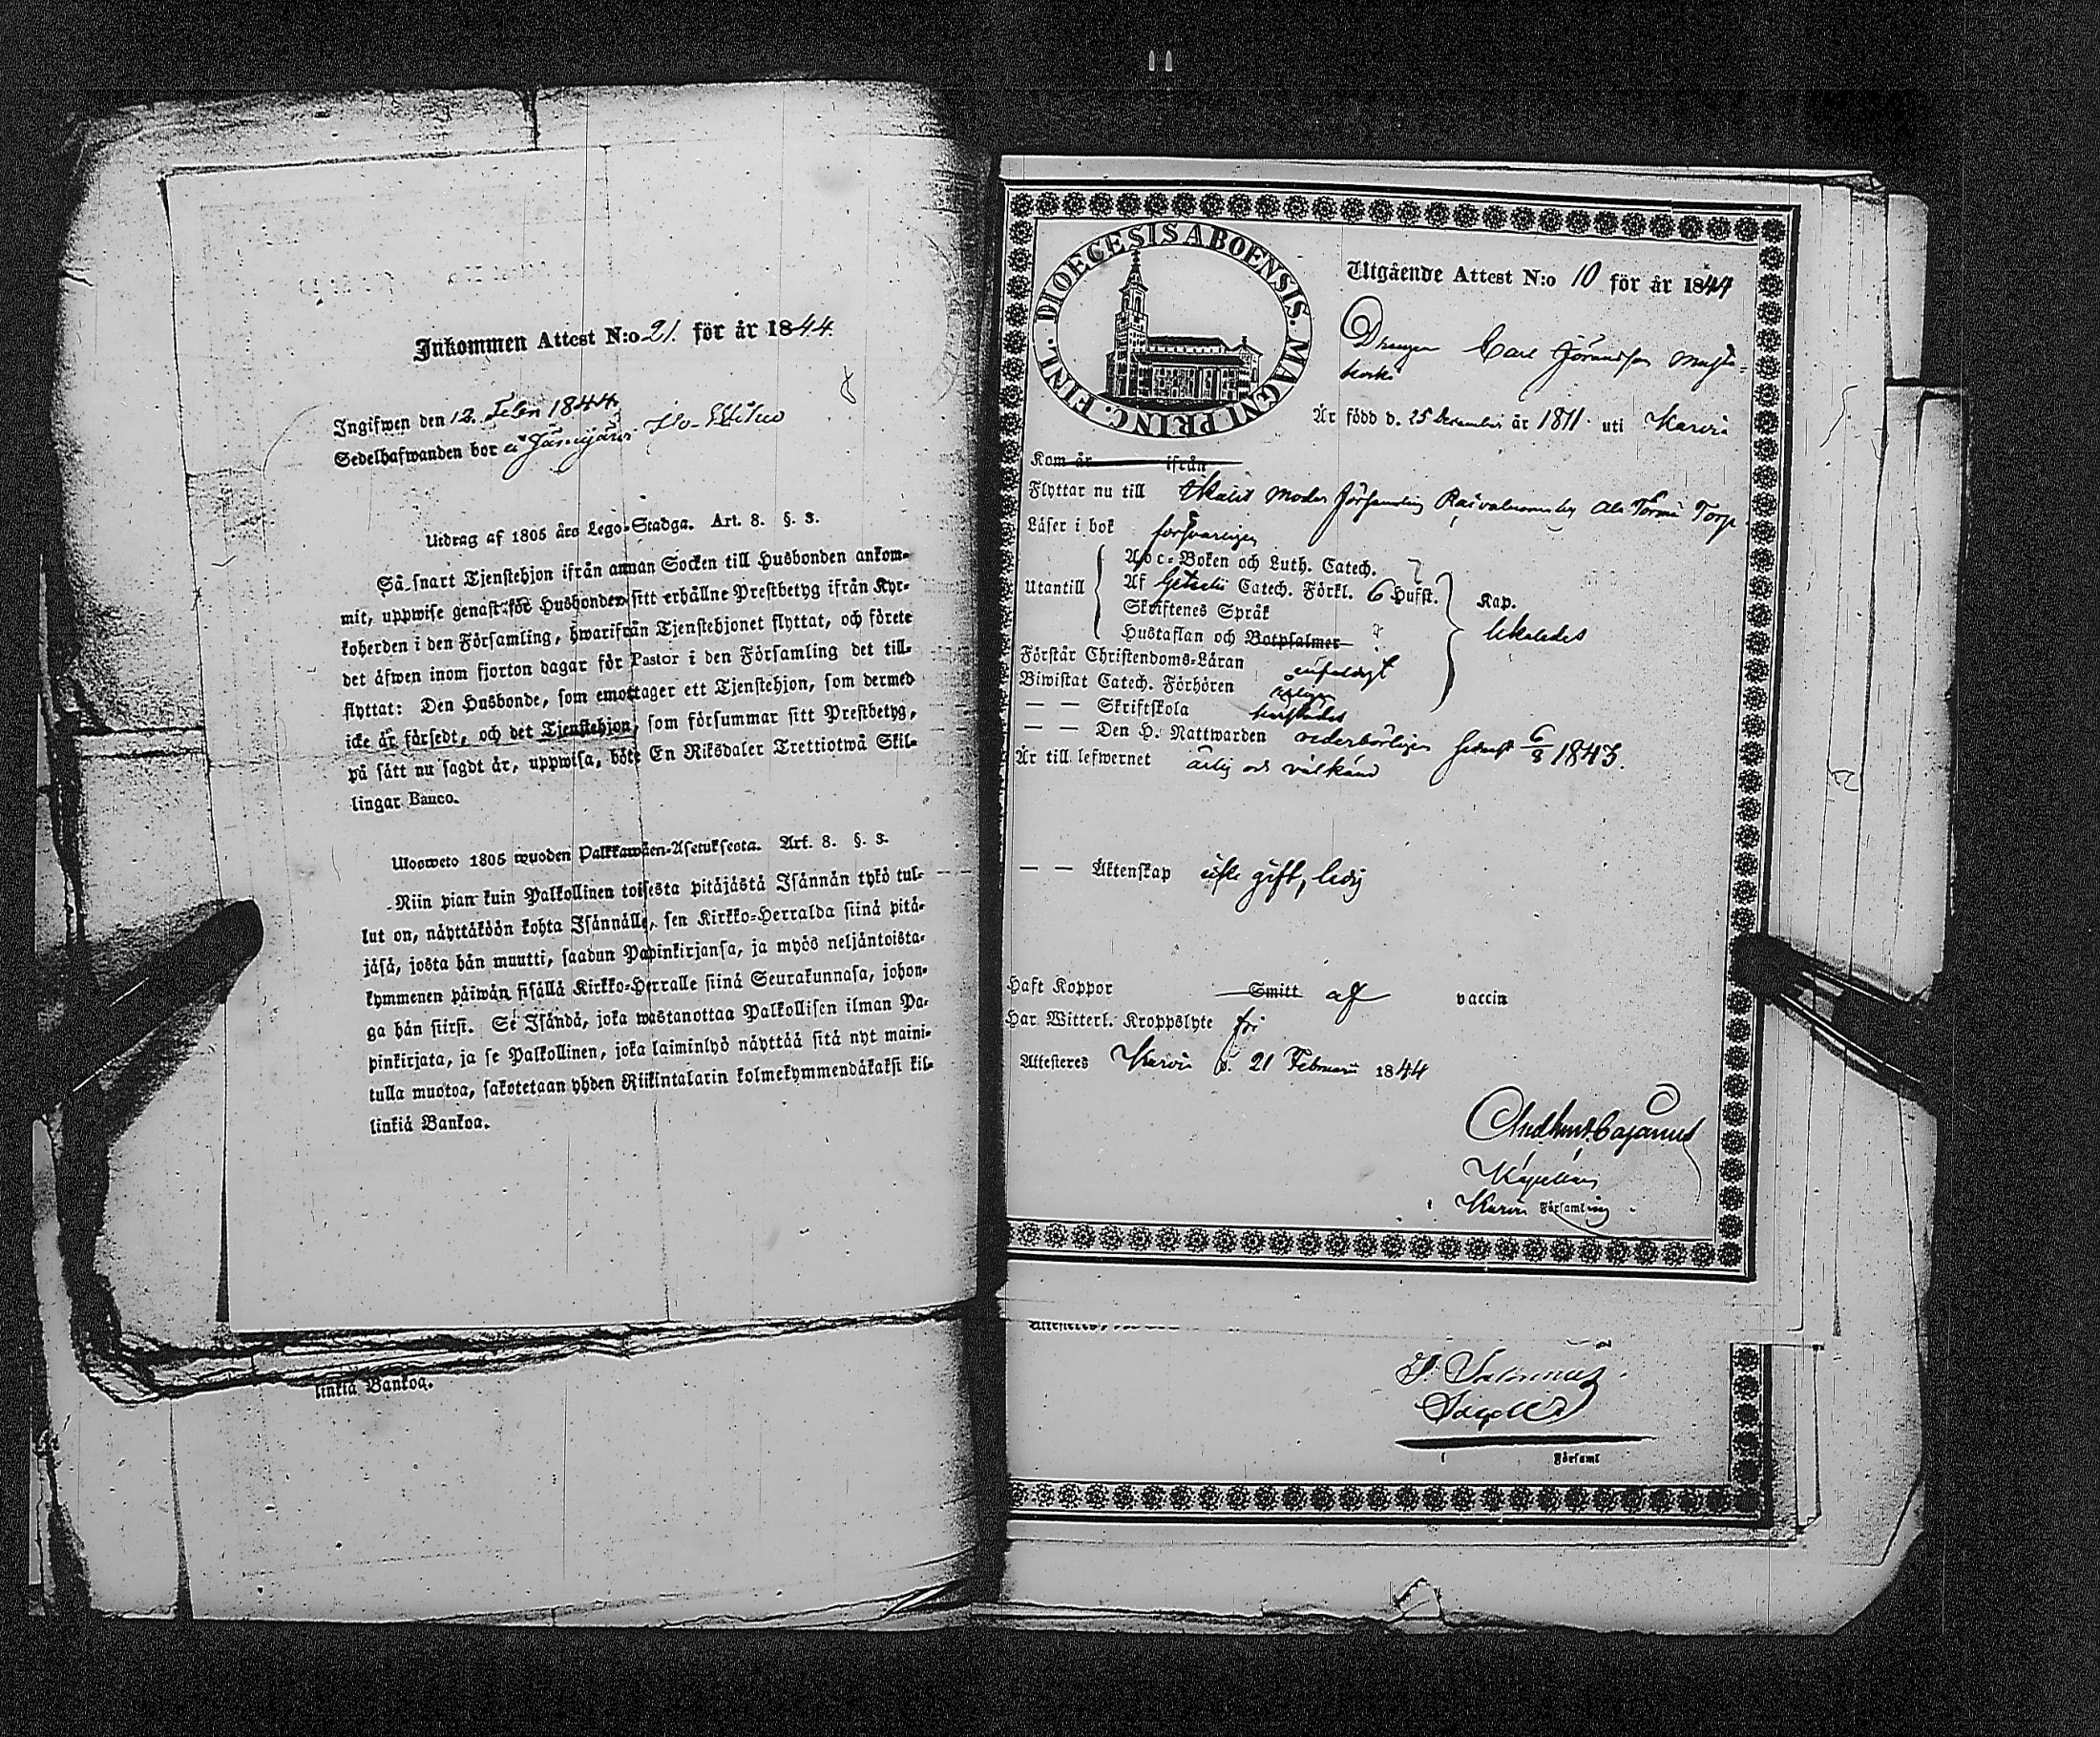 Inkommen Attest N:o 21. för år 1844.
Ingifwen den 12. Febr 1844
Sedelhafwanden bor i Jämijärvi
Utdrag af 1805 års Lego-Stadga. Art. 8. §. 3.
Så snart Tjenstehjon ifrån annan Socken till Husbonden ankom-
mit, uppwise genast för Husbonden sitt erhållne Prestbetyg ifrån Kyr-
koherden i den Församling, hwarifrån Tjenstehjonet flyttat, och förete
det äfwen inom fjorton dagar för Pastor i den Församling det till-
flyttat: Den Husbonde, som emottager ett Tjenstehjon, som dermed
icke är försedt, och det Tjenstehjon, som försummar sitt Prestbetyg,
på sätt nu sagdt är, uppwisa, böte En Riksdaler Trettiotwå Skil-
lingar Banco.
Ulosweto 1805 wuoden Palkkawäen-Asetuksesta. Art. 8. §. 3.
Niin pian kuin Palkollinen toisesta pitäjästä Isännän tykö tul-
lut on, näyttäköön kohta Isännälle, sen Kirkko-Herralda siinä pitä-
jäsä, josta hän muutti, saadun Papinkirjansa, ja myös neljäntoista-
kymmenen päiwän sisällä Kirkko-Herralle siinä Seurakunnasa, johon-
ga hän siirst. Se Isändä, joka wastanottaa Palkollisen ilman Pa-
pinkirjata, ja se Palkollinen, joka laiminlyö näyttää sitä nyt maini-
tulla muotoa, sakotetaan yhden Riikintalarin kolmekymmendäkaksi kil-
linkiä Bankoa.
linkiä Bankoa.
DIOECESIS ABOENSIS. MAGNI PRINC. FINL.
Utgående Attest N:o 10 för år 1844
Drengen Carl
Är född d. 25 December år 1811 uti Karvia
Kom år ifrån
Flyttar nu till Moder Församling Torp
Läser i bok försvarligen
Utantill
Abc-Boken och Luth. Catech.
Af Catech. Förkl. 6 Hufst.
Skriftenes Språk
Hustaflan och Botpsalmer
Kap.
Förstår Christendoms-Läran enfaldigt
Biwistat Catech. Förhören årligen
— — Skriftskola
— — Den H. Nattwarden vederbörligen senast 6/8 1843.
Är till lefwernet ärlig och välkänd
— — Äktenskap icke gift, ledig
Haft Koppor Smitt af vaccin
Har Witterl. Kroppslyte fri
Attesteras Karvia d. 21 Februarii 1844
Cajanus
Kapellan
i Karvia Församling.
i Församl